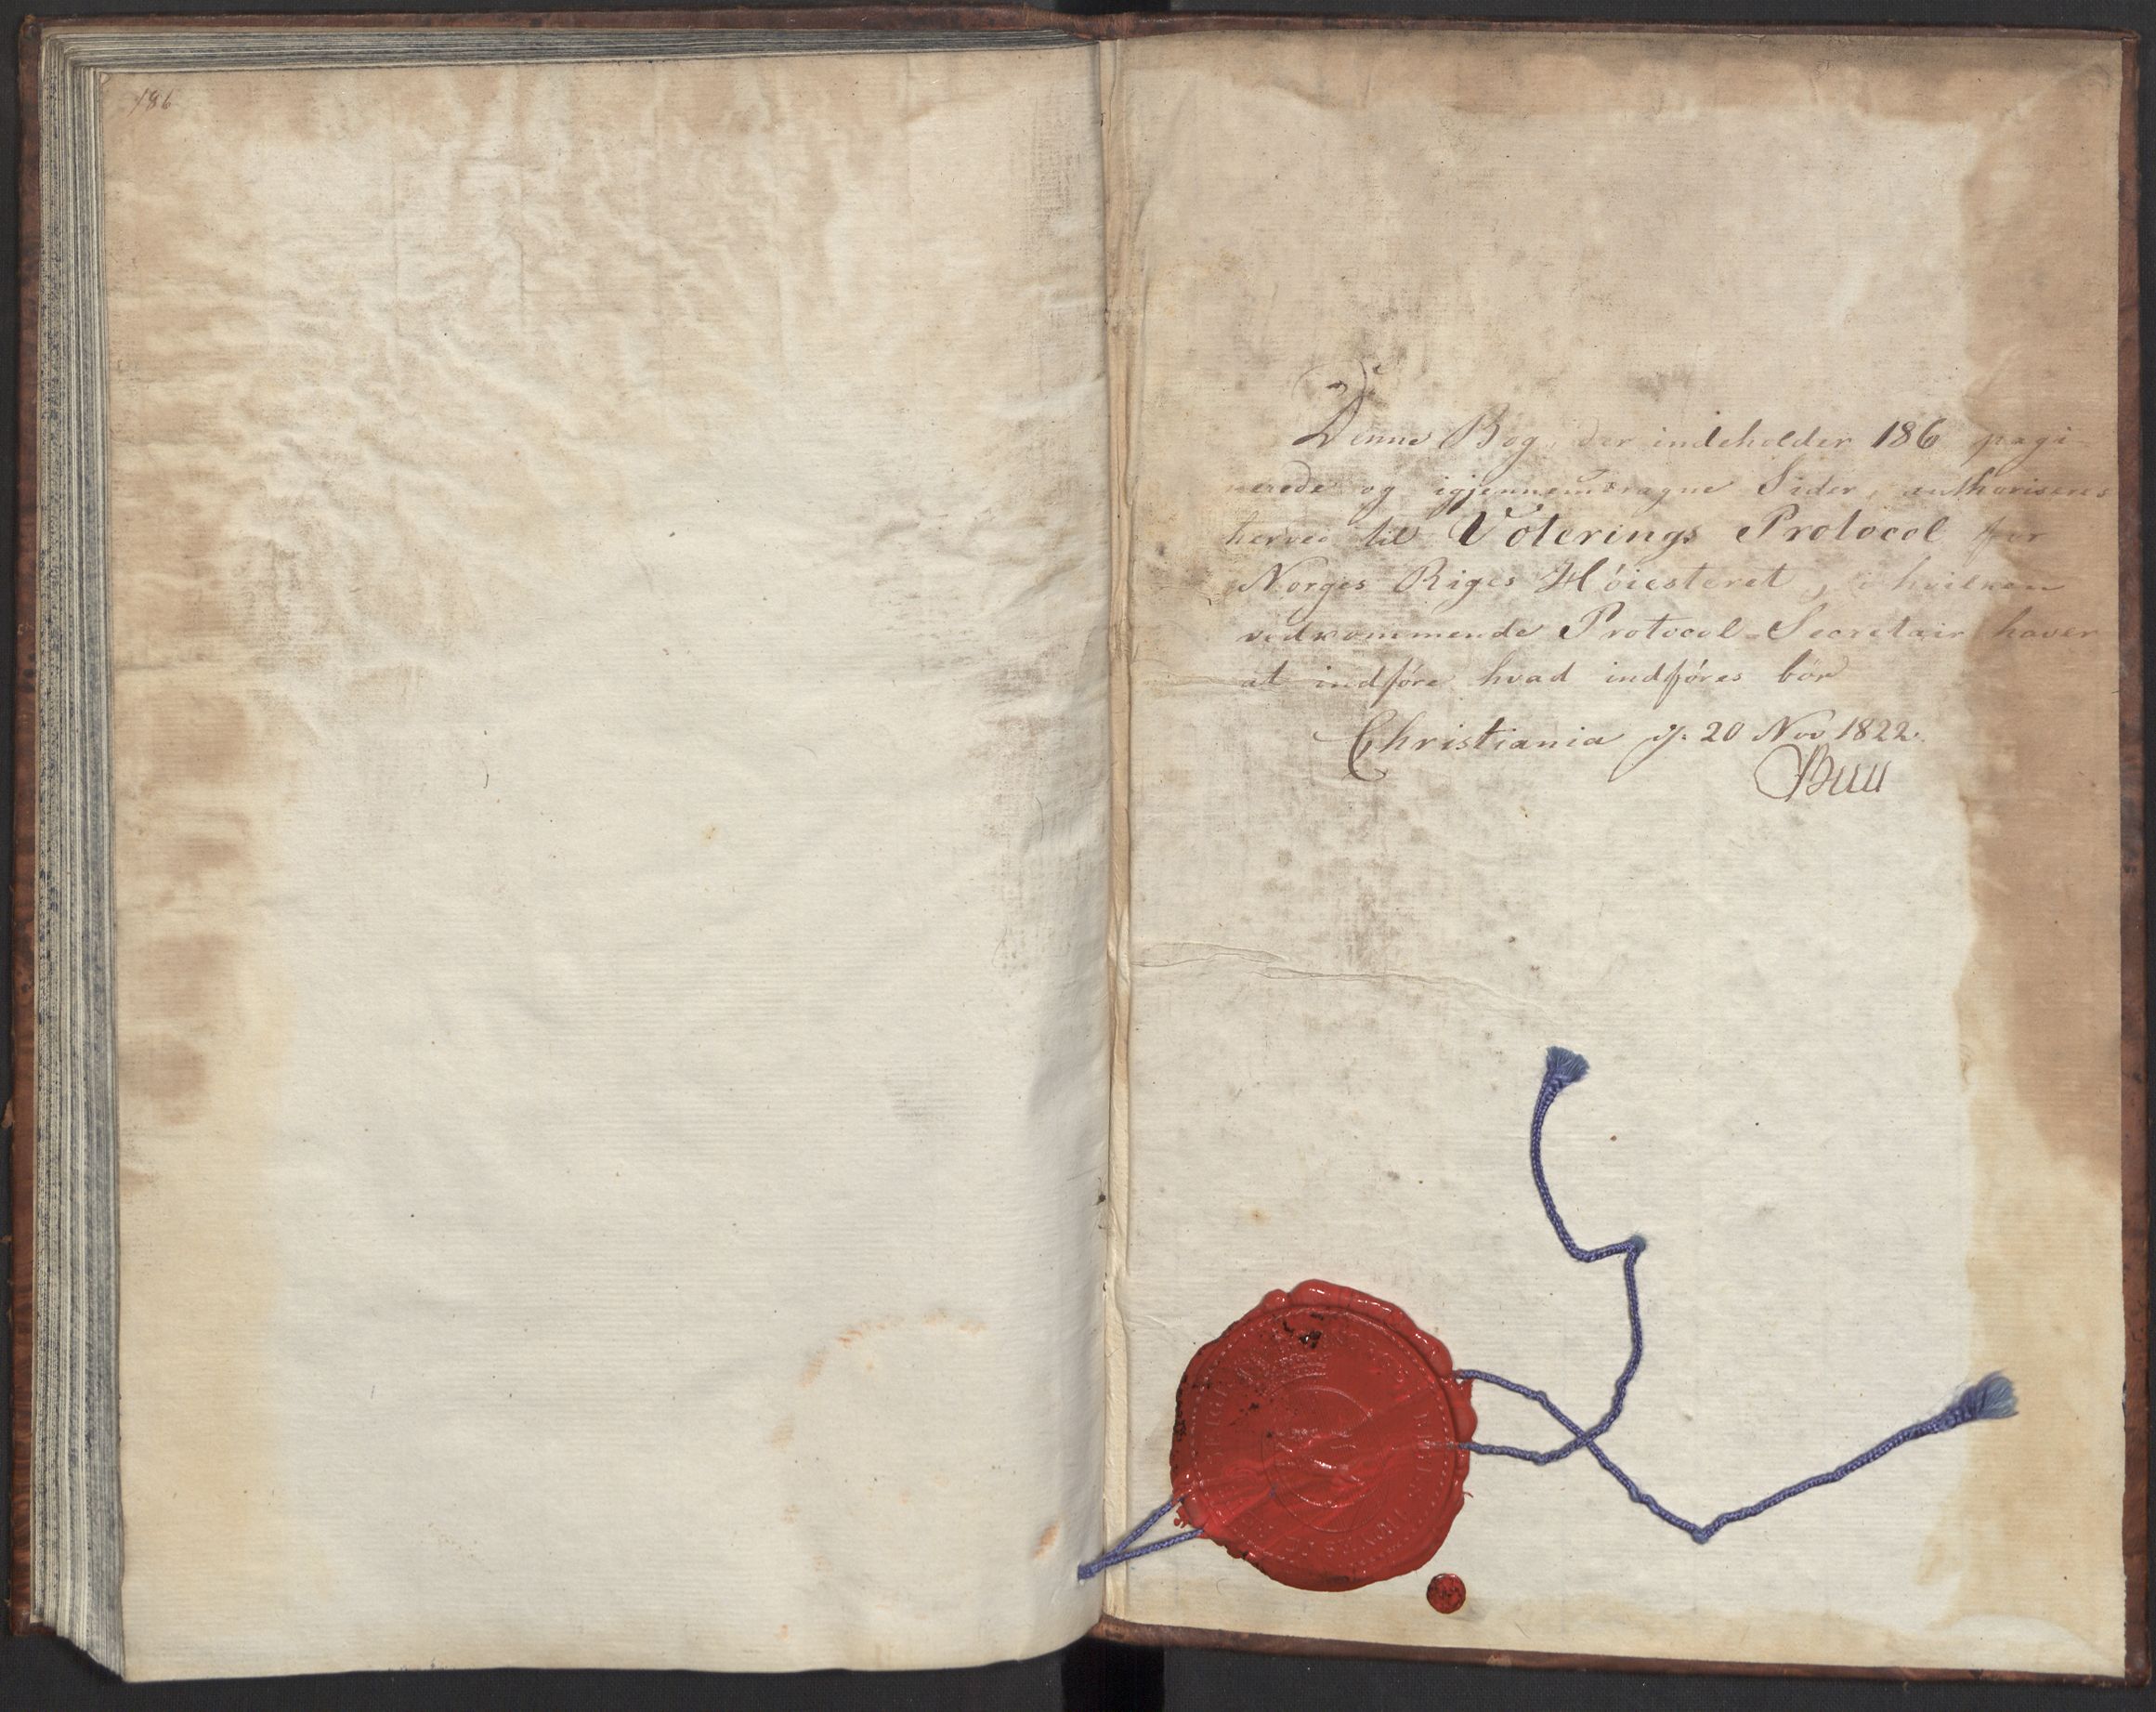 186
Denne Bog, der indeholder 186 pagi
nerede og igjennemdragne Sider, authoriseres
herved til Voterings Protocol for
Norges Riges Höiesteret, i hvilken
vedkommende Protocol-Secretair haver
at indföre hvad indföres bör
Christiania d. 20 Nov 1822.
Bull